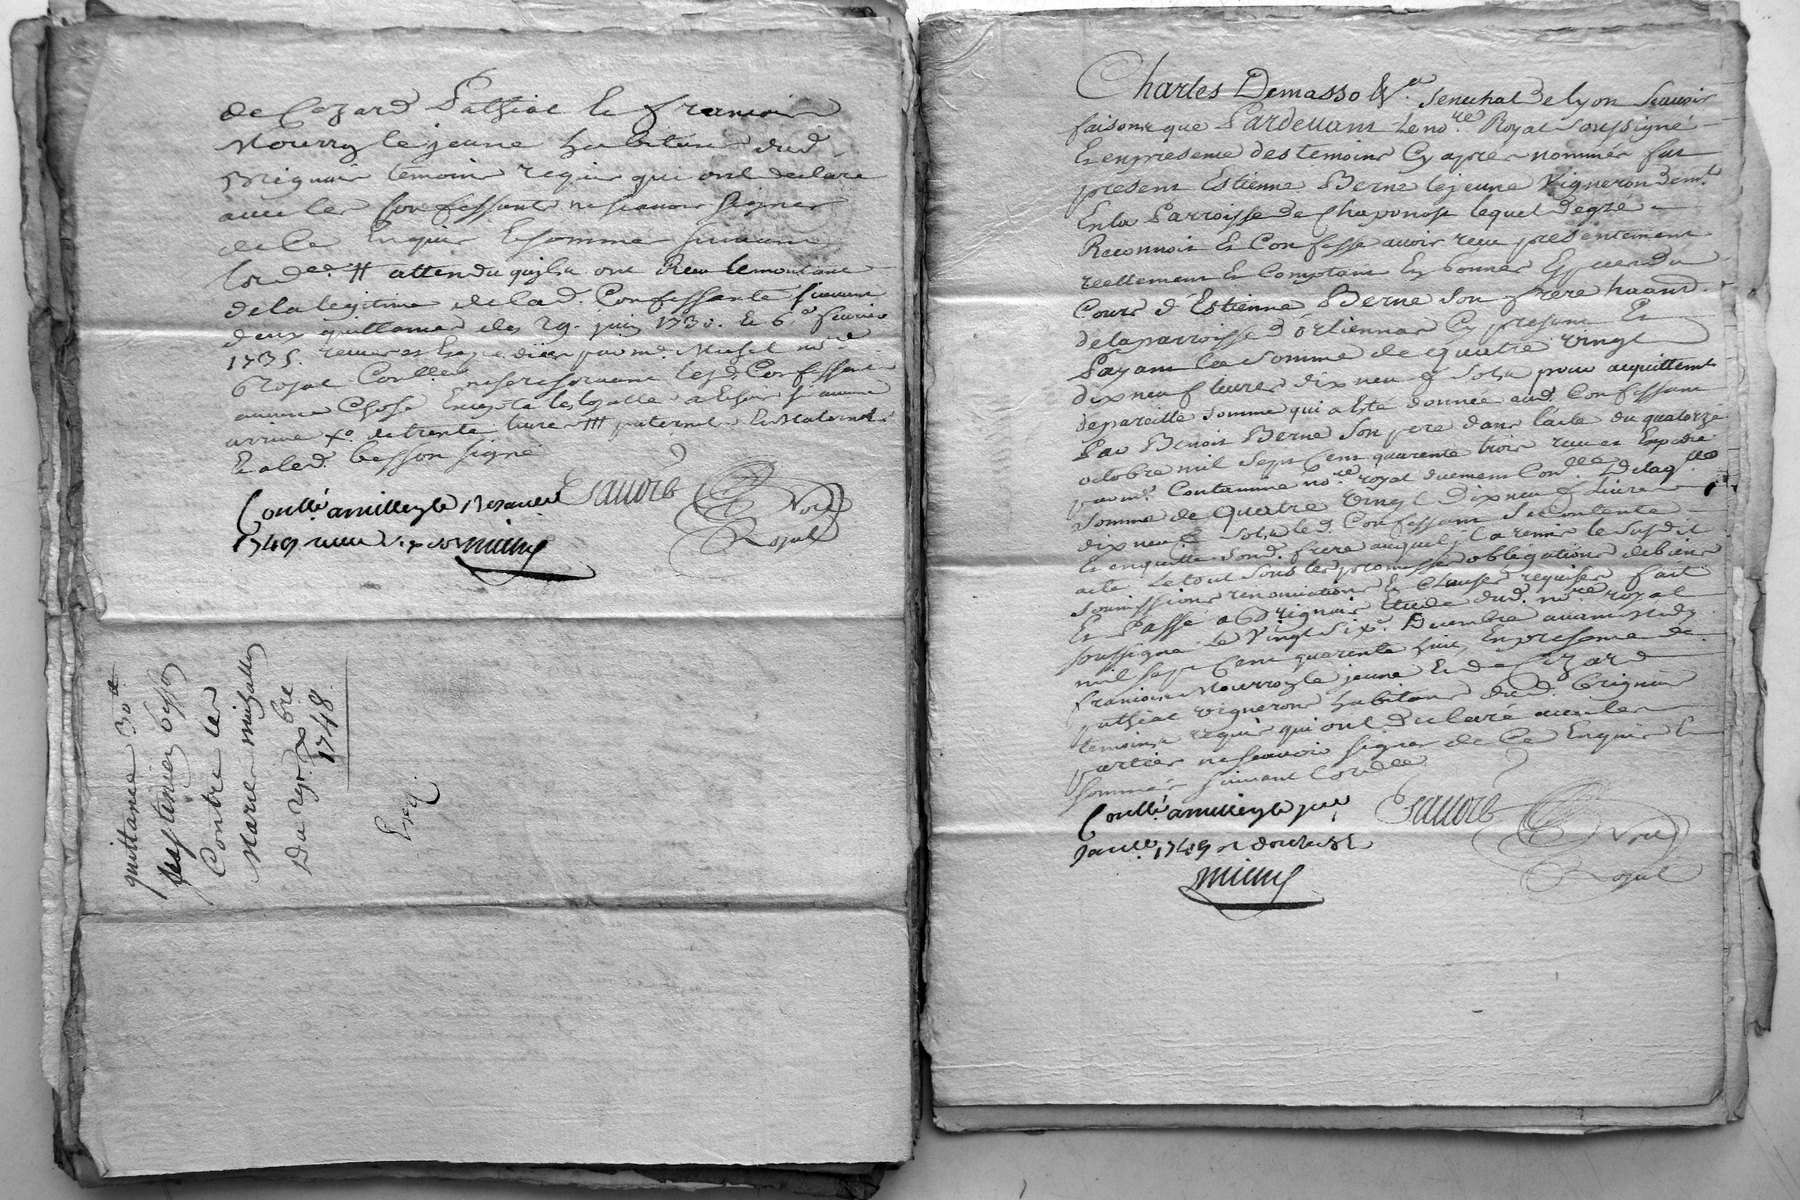 de Cezard Pathiat & francois
Mourroz le jeune habitans dud.
Brignais temoins requis qui ont declaré
avec les Confessants ne scavoir signer
de ce Enquis & sommes suivant
lord.ce # attendu quils ont Reçu le montant
de la legitime de lad. Confessante suivant
deux quittances des 29. juin 1730. & 6.e fevrier
1735. receues & par m.e no.re
Royal les d. Confessants
aucune Chose
de trente livres # paternel & Maternel
& led. besson signé
Conllé a millery le
1749 reçu six sols
Royal
quittance 30 #
besson
Contre les
Marie
Du 29.e xbre
1748
Exp.
Charles Demasso &.a Senechal De lyon Scavoir
faisons que Pardevant Le no.re Royal soussigné
& en presence des temoins Cy apres nommés fut
present Estienne Berne le jeune Vigneron Dem.t
En la Parroisse de Chaponost lequel de gré
Reconnoit & Confesse avoir reçu presentement
reellement & Comptant En bonnes Especes du
Cours d'Estienne Berne son frere
de la parroisse d'orliennas Cy present &
Payant la somme de quatre vingt
dix neuf livres dix neuf sols pour acquittem.t
de pareille somme qui a Esté donnée aud. Confessant
Par Benoit Berne son pere dans l'acte du quatorze
octobre mil sept Cent quarente trois receu & Expedié
par m.e Contamine no.re royal De laq.lle
somme de quatre vingt Dix neuf Livres
dix neuf sols le d. Confessant se contente
& en quitte son d. frere auquel il a remis le susdit
acte Le tout sous les promesses obligations de biens
soumissions renonciations & Clauses requises fait
& Passé a Brignais Etude dud. no.re royal
soussigné le vingt six.e Decembre avant midy
mil sept Cent quarente huit En presence de
francois Mourroz le jeune & de Cezard
pathiat vignerons habitans dud. brignais
temoins requis qui ont declaré avec les
parties ne scavoir signer de Ce Enquis &
sommés suivant l'ord.ce
Conllé a millery le
janv. 1749 r. douze sols
Royal